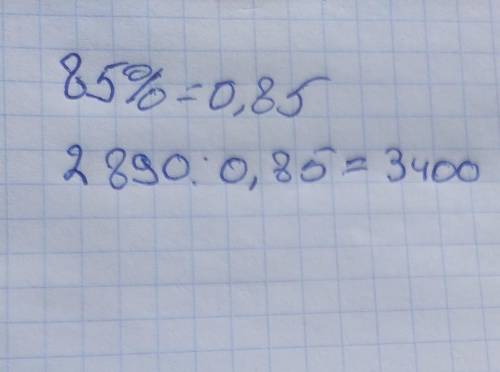 85%=0,85
2890:0,85=3400